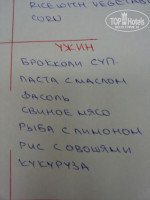 RICE WITH VEGETABL
CORN
TOP HOTELS
УЖИН
БРОККОЛИ СУП
ПАСТА С МАСЛОМ
ФАСОЛЬ
СВИНОЕ МЯСО
РЫБА С ЛИМОНОМ
РИС С ОВОШЯМИ
КУКУРУЗА